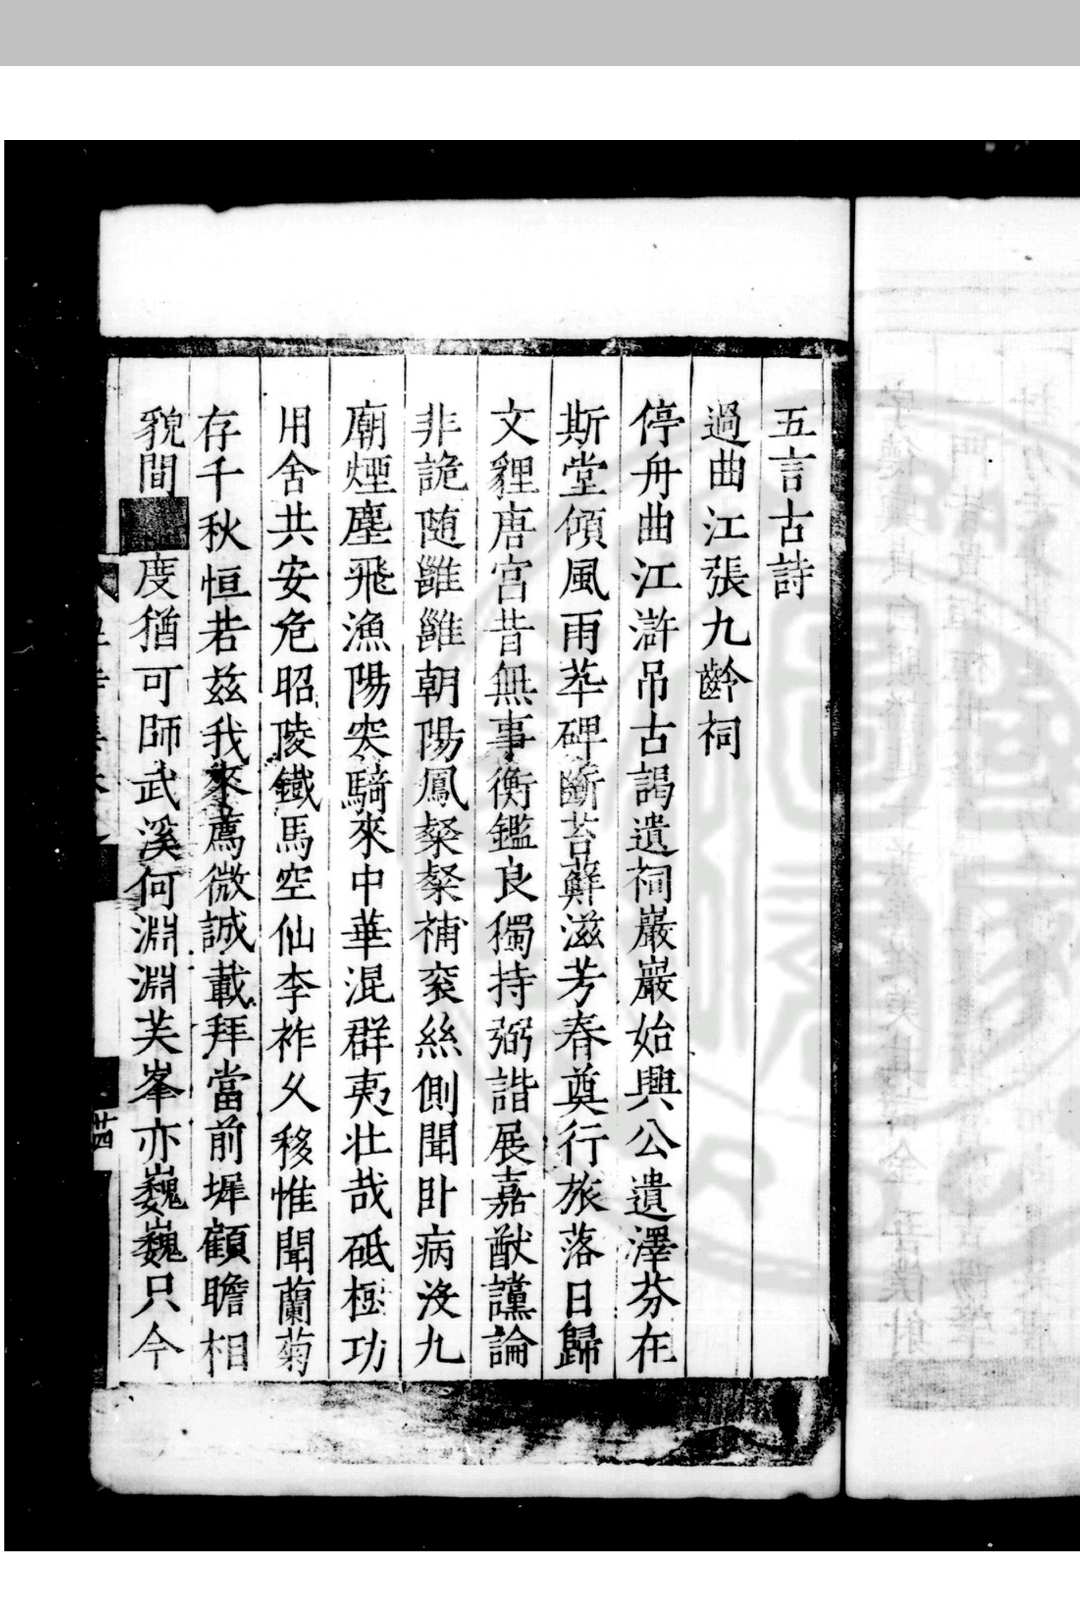 五言古詩
過曲江張九齡祠
停舟曲江滸吊古謁遺祠巖巖始興公遺澤芬在
斯堂傾風雨莽碑斷苔蘚滋芳春奠行旅落日歸
文貍唐宮昔無事衡鑑良獨持弼諧展嘉猷讜論
非詭随雝雝朝陽鳳粲粲補衮絲側聞卧病沒九
廟煙塵飛漁陽突騎來中華混群夷壮哉砥柱功
用舍共安危昭陵鐵馬空仙李祚久移惟聞蘭菊
存千秋恒若兹我來薦微誠載拜當前墀顧瞻相
貌間度猶可師武溪何淵淵芙峯亦巍巍只今
廿四